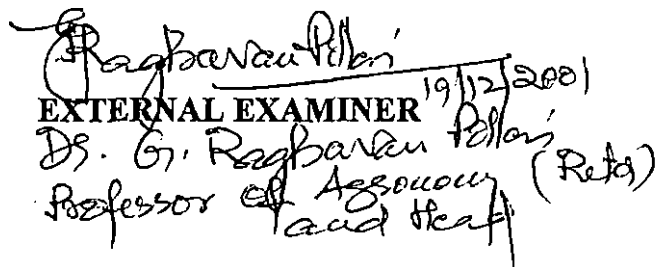 G Raghavan Pillai
19/12/2001
EXTERNAL EXAMINER
Dr. G. Raghavan Pillai
Professor of Agronomy (Retd)
and Head